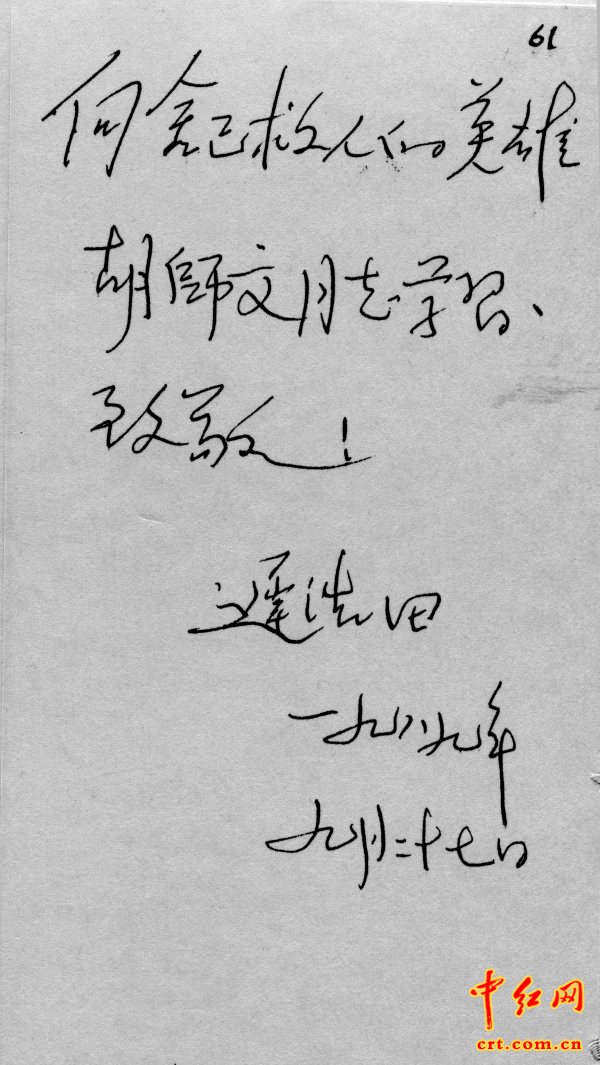 61
向舍己救人的英雄
胡师文同志学习、
致敬！
迟浩田
一九八九年
九月二十七日
中红网
crt.com.cn